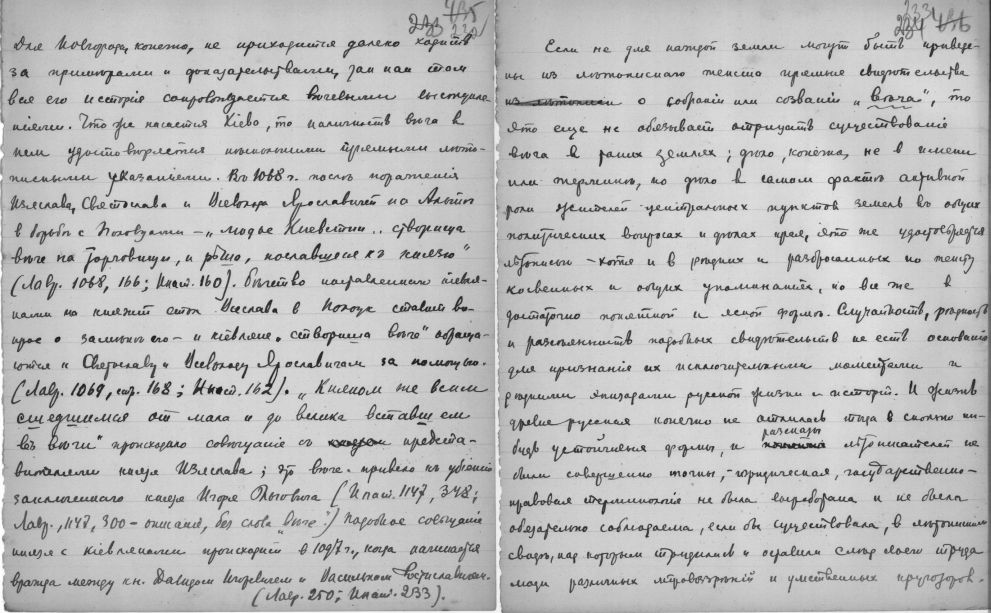 435
233 232
Для Новгорода, конечно, не приходится далеко ходить
за примерами и доказательствами, так как там
вся его история сопровождается вечевыми
Что же касается Кіева, то наличность веча в
нем удостоверяется несколькими прямыми лето-
писными указаниями. Въ 1068 г. после поражения
Изяслава, Святослава и Всеволода Ярославичей на Альте
в борьбе с Половцами – „людье Киевстии .. створиша
вече на Торговищи, и реша, пославшеся къ князю"
(Лавр. 1068, 166; Ипат. 160). Бегство
на княжий стол Всеслава в Полоцк ставит во-
прос о и кіевляне „створиша вече" обраща-
ются к Святославу и Всеволоду Ярославичам за помощью.
(Лавр. 1069, стр. 168; Ипат. 162). „Кияном же всим
съшедшимся от мала и до велика вставшем
въ вечи" происходило совещание с предста-
вителями князя Изяслава; это вече привело къ убіению
заключенного князя Игоря Ольговича (Ипат. 1147, 348;
Лавр., 1147, 300 – описания, без слова „вече".) Подобное совещание
князя с кіевлянами происходит в 1097 г., когда начинается
вражда между кн. Давидом Игоревичем и Васильком Ростиславичем.
(Лавр. 250; Ипат. 233).
233
234 436
Если не для каждой земли могут быть приведе-
ны из летописного текста прямые свидетельства
о собраніи или созваніи „веча", то
это еще не обязывает отрицать существование
веча в таких землях; дело, конечно, не в имени
или термине, но дело в самом факте активной
роли жителей центральных пунктов земель въ общих
политических вопросах и делах края, это же удостоверяется
летописью – хотя и в редких и разбросанных по тексту
косвенных и общих упоминаниях, но все же в
достаточно понятной и ясной форме. Случайность, редкость
и разсеянность подобных свидетельств не есть основаніе
для признания их исключительными моментами и
редкими эпизодами русской жизни и исторіи. И жизнь
древне русская конечно не отлилась тогда в сколько ни-
будь устойчивыя формы, и разсказы летописателей не
были совершенно точны, – юридическая, государственно-
правовая терминологія не была выработана и не была
обязательно соблюдаема, если бы существовала, в летописном
своде, над которым трудились и оставили след своего труда
люди различных міровоззрений и умственных кругозоров.